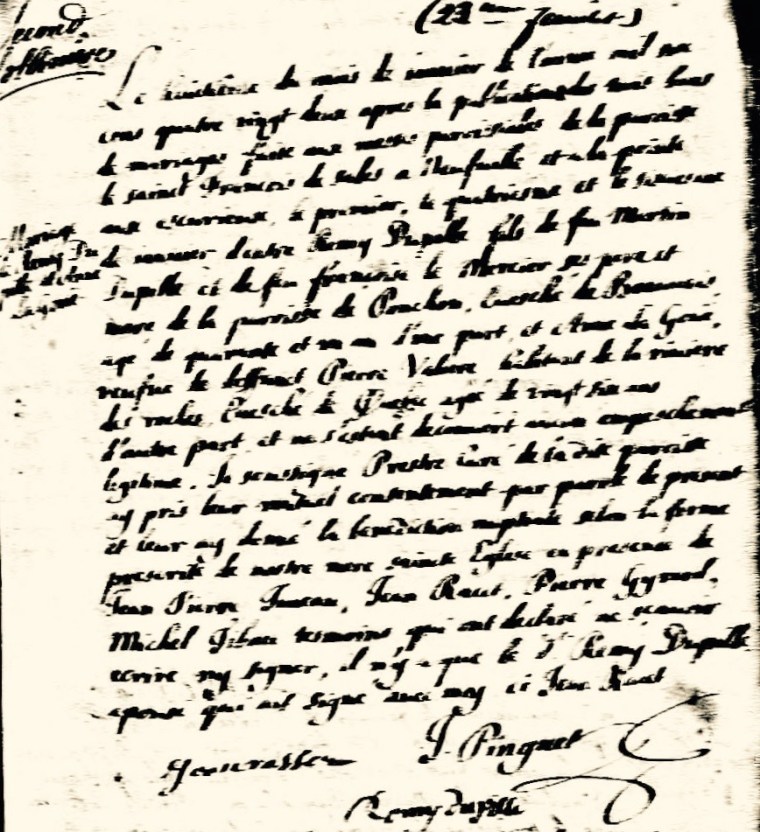 (23ème Janvier)
second
Le huictiesme du mois de janvier de l'annee mil six
cens quatre vingt deux apres la publication des trois bans
de mariage faite aux messes paroissiales de la paroisse
de sainct François de Sales a Neufville et a la pointe
aux escurieux, le premier, le quatriesme et le sixiesme
de janvier d'entre Remy Dupille fils de feu Martin
Dupille et de feu françoise le Mercier ses pere et
mere de la paroisse de Ponchon, Evesché de Beauvais,
agé de quarente et un an d'une part, et Anne La Goue,
veufve de deffunct Pierre Valiere habitant de la riviere
des roches, Evesché de Quebec agée de vingt six ans
d'autre part, et ne s'estant decouvert aucun empeschement
legitime, Je soussigne Prestre curé de la dite paroisse
ay pris leur mutuel consentement par parole de present
et leur ay donné la benediction nuptiale selon la forme
prescrite de nostre mere saincte Eglise en presence de
Jean Pierre Juneau, Jean Racet, Pierre
Michel tesmoins qui ont declaré ne scauoir
ecrire ny signer, il n'y a que le dt Remy Dupille
epoux qui ait signé avec moy et Jean Racet
Mariage
de Remy Du
pille et Anne
La goue
J Pinguet
Remy dupille